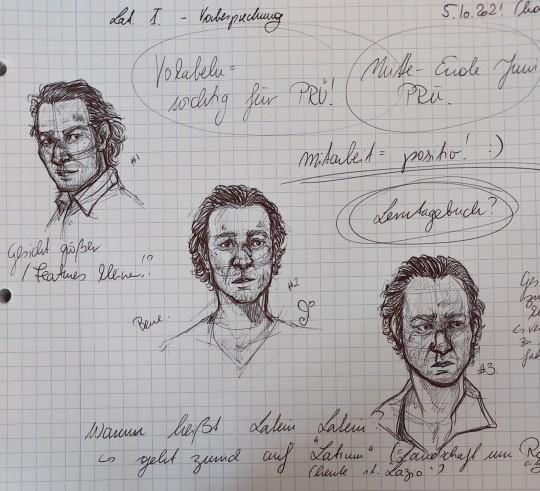 Lat. I. - Vorbesprechung
5.10.2021
Vokabeln =
wichtig für PRÜ!
Mitte - Ende Juni
PRÜ.
Mitarbeit = positiv! :)
Lerntagebuch?
#1
Gesicht größer
/ Features kleiner!?
#2
#3
Warum heißt Latein Latein?
↳ geht zurück auf "Latium" (= Landschaft um
(heute it. Lazio?)